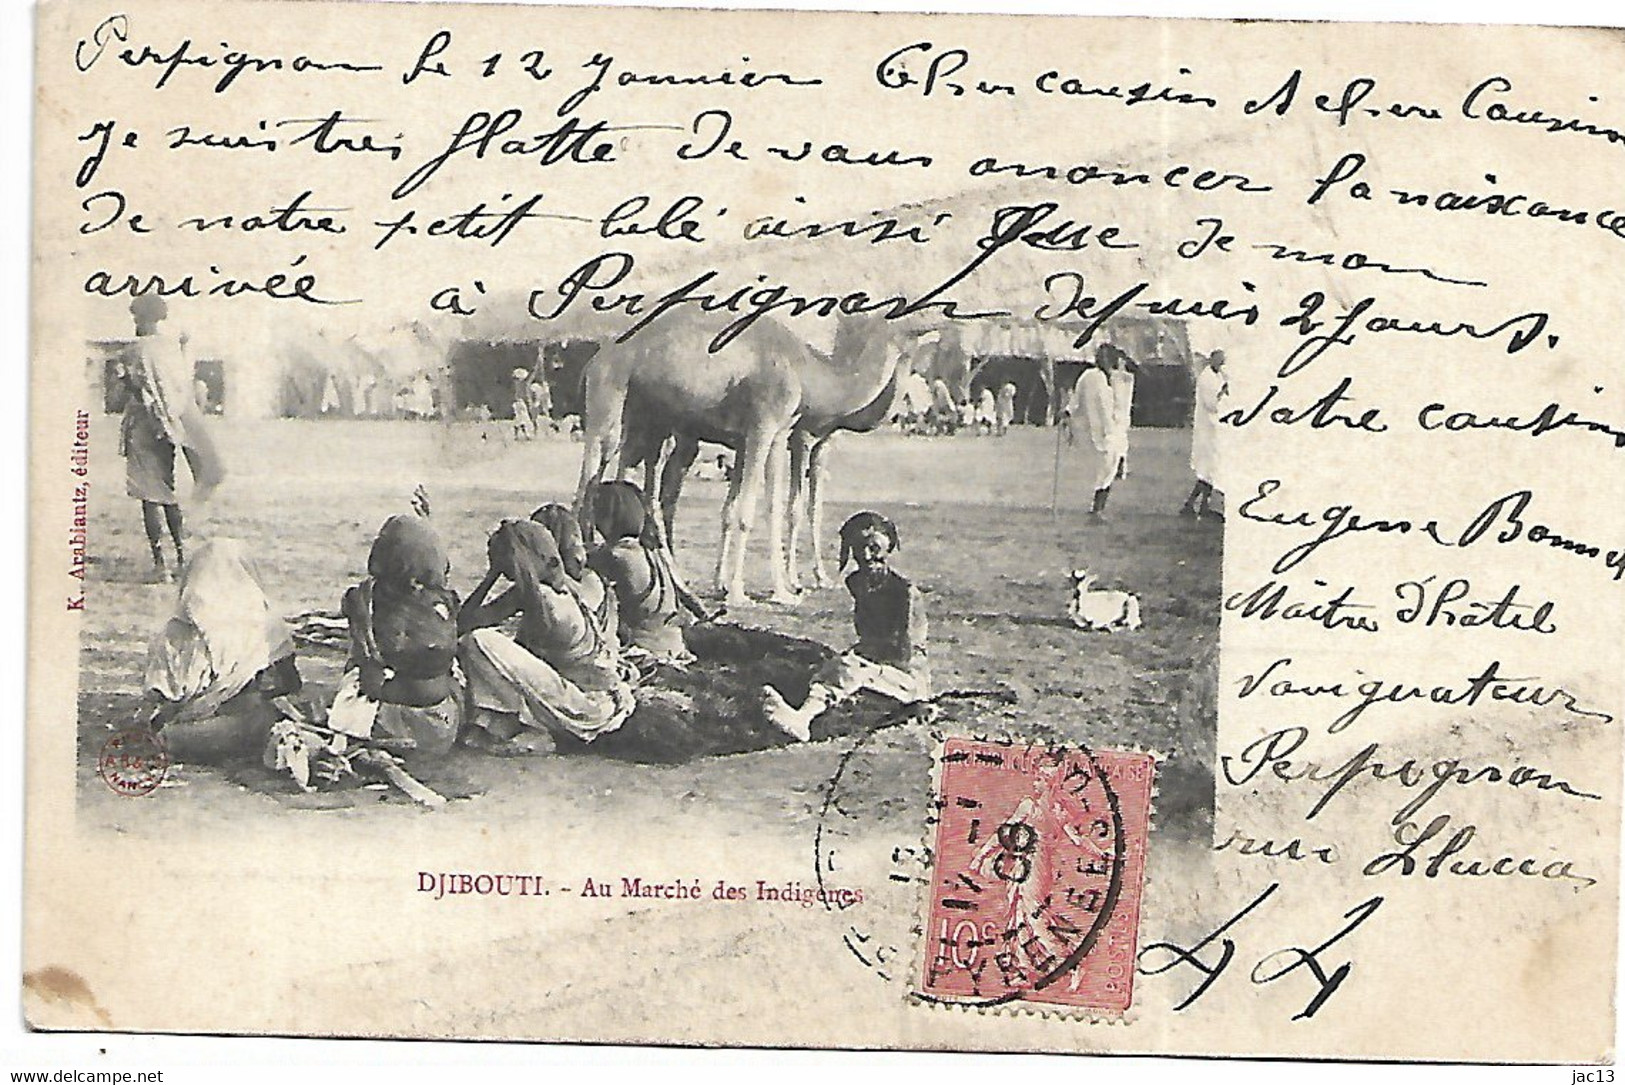 Perpignan le 12 Janvier Cher cousin et chere Cousine
Je suis tres flatte de vous anoncer la naissance
de notre petit bebé ainsi que de mon
arrivée à Perpignan depuis 2 Jours.
Votre cousin
Eugene Bonnet
Maitre d'hôtel
Navigateur
Perpignan
rue Llucia
44
K. Arabiantz, éditeur
DJIBOUTI. - Au Marché des Indigènes
POSTES
10c
PYRENEES-
12
-1
06
NANCY
delcampe.net
jac13